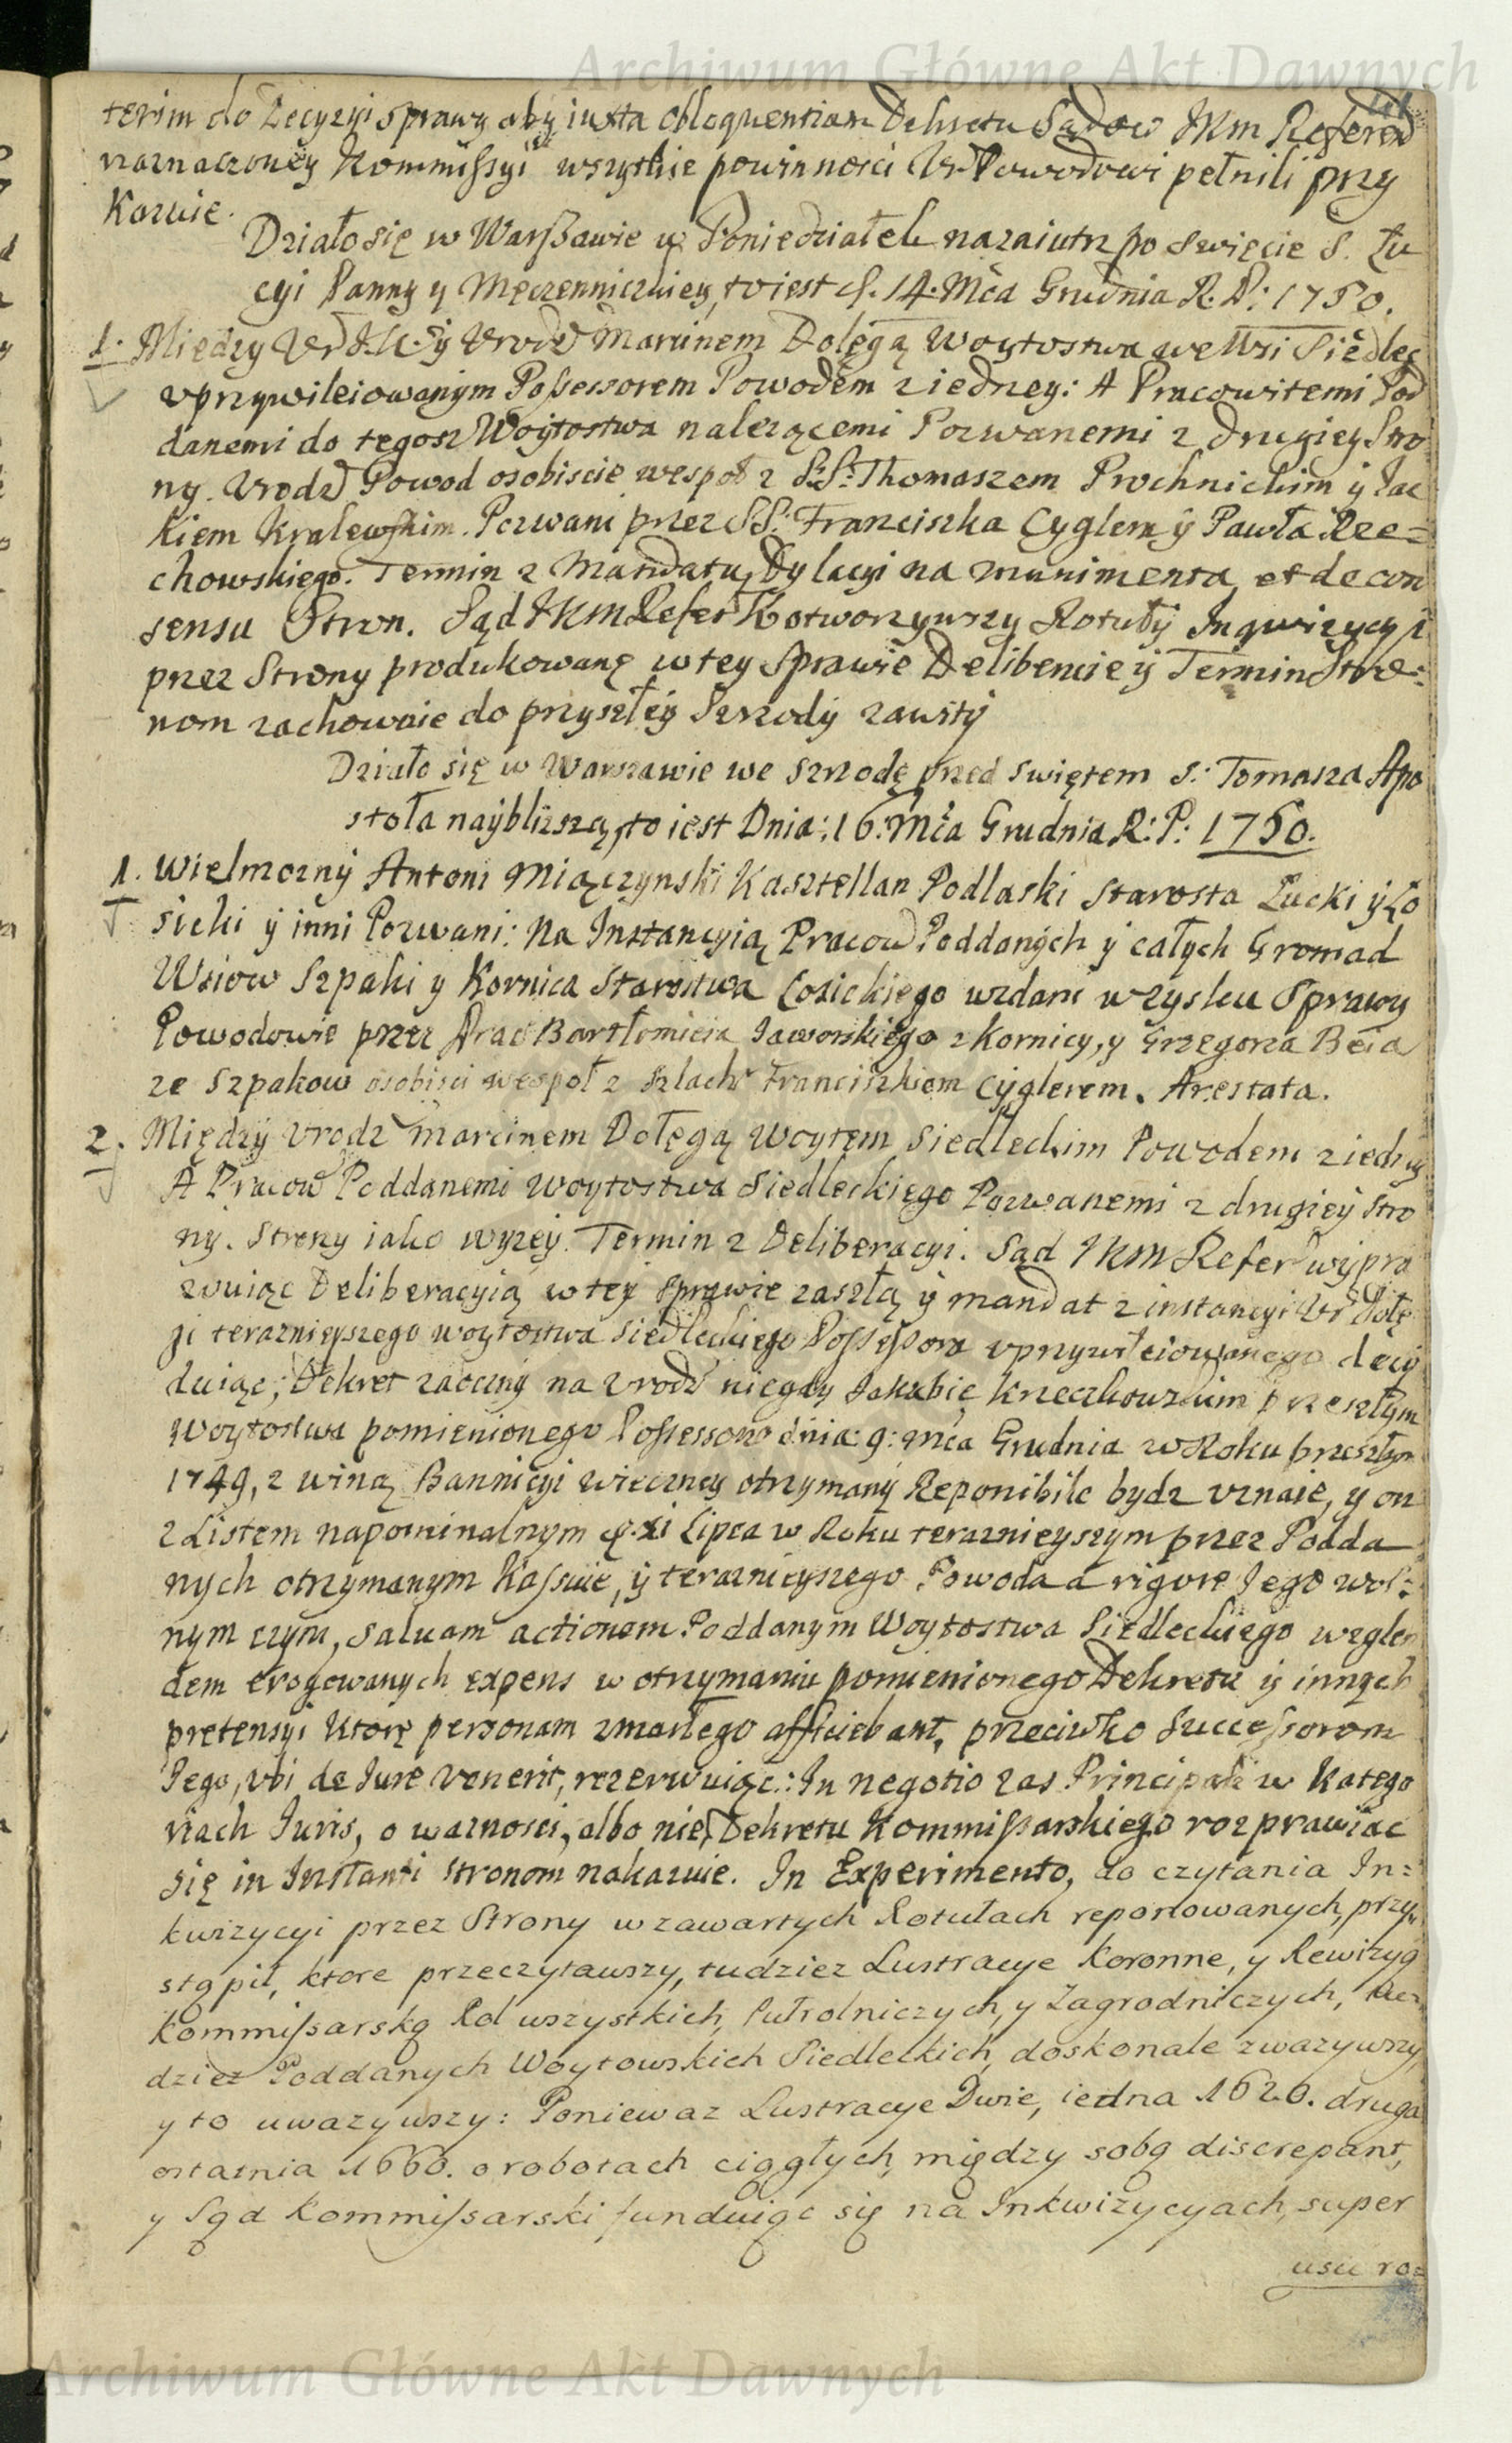 Archiwum Główne Akt Dawnych
terim do Decyzyi sprawy aby iuxta obloquentiam Dekretu Sądow JKM Referend
naznaczoney Kommissyi wszytkie powinnosci Ur. Powodowi pełnili przy
Kazuie.
Działo się w Warszawie w Poniedziałek nazaiutrz po Swięcie S. Łu
cyi Panny y Męczenniczkiey, to iest d. 14. Mca Grudnia R. P: 1750.
1. Między Ur y Urodz Marcinem Dołęgą Woytostwa we Wsi Siedlec
uprzywileiowanym Possessorem Powodem z iedney: A Pracowitemi Pod
danemi do tegosz Woytostwa nalezącemi Pozwanemi z drugiey Stro
ny. Urodz Powod osobiscie wespoł z S. S. Thomaszem Prochnickim y Jac
kiem Kralewskim. Pozwani przez SS. Franciszka Cyglera y Pawła Rze=
chowskiego. Termin z Mandatu, Dylacyi na munimenta, et de con
sensu Stron. Sąd JKM Refer otworzywszy Rotuły Inqwizycyi
przez Strony produkowanę w tey Sprawie Deliberuie y Termin Stro=
nom zachowuie do przyszłey Szrzody zawity
Działo się w Warszawie we Szrzodę przed swiętem S: Tomasza Apo
stoła naybliszszą, to iest Dnia: 16: Mca Grudnia R: P: 1750.
1. Wielmozny Antoni Miączynski Kasztellan Podlaski Starosta Łucki y Ło
sicki y inni Pozwani: Na Instancyią Pracow Poddanych y całych Gromad
Wsiow Szpaki y Kornica Starostwa Łosickiego wzdani w zysku Sprawy
Powodowie przez Prac Bartłomieia Jaworskiego z Kornicy, y Grzegorza Beia
ze Szpakow osobisci wespoł z Szlach Franciszkiem Cyglerem. Arestata.
2. Między Urodz Marcinem Dołęgą Woytem Siedleckim Powodem z iedney
A Pracow Poddanemi Woytostwa Siedleckiego Pozwanemi z drugiey Stro
ny. Strony iako wyzey. Termin z Deliberacyi. Sąd JKM Refer wypra
wuiąc Deliberacyią w tey Sprawie zaszłą y mandat z instancyi Ur Dołę
gi teraznieyszego woytostwa Siedleckiego Possessora uprzywileiowanego decy
duiąc; Dekret zaoczny na Urodz niegdy Jakubie Krzeczkowskim przeszłym
Woytostwa pomienionego Possessorze dnia: 9: Mca Grudnia w Roku przeszłym
1749, z winą Bannicyi wieczney otrzymany Reponibile bydz uznaie, y on
z Listem napominalnym d. xi Lipca w Roku teraznieyszym przez Podda
nych otrzymanym Kassuie, y teraznieyszego Powoda a rigore Jego wol=
nym czyni, salvam actionem Poddanym Woytostwa Siedleckiego wzglen
dem erogowanych expens w otrzymaniu pomienionego Dekretu y innych
pretensyi ktorę personam zmarłego afficiebant, przeciwko Successorom
Jego, ubi de Jure venerit, rezerwuiąc: In negotio zas Principali w Katego
riach Juris, o waznosci, albo nie, Dekretu Kommissarskiego rozprawiac
się in Instanti stronom nakazuie. In Experimento, do czytania In=
kwizycyi przez Strony w zawartych Rotułach reportowanych, przy
stąpił, ktore przeczytawszy, tudziez Lustracye Koronne, y Rewizyą
Kommissarską Rol wszystkich, Pułrolniczych, y Zagrodniczych, tu
dziez Poddanych Woytowskich Siedleckich, doskonale zwazywszy,
y to uwazywszy: Poniewaz Lustracye Dwie, iedna 1620. druga
ostatnia 1660. o robotach ciągłych, między sobą discrepant,
y Sąd Kommissarski funduiąc się na Inkwizycyach, super
usu ro=
Archiwum Główne Akt Dawnych